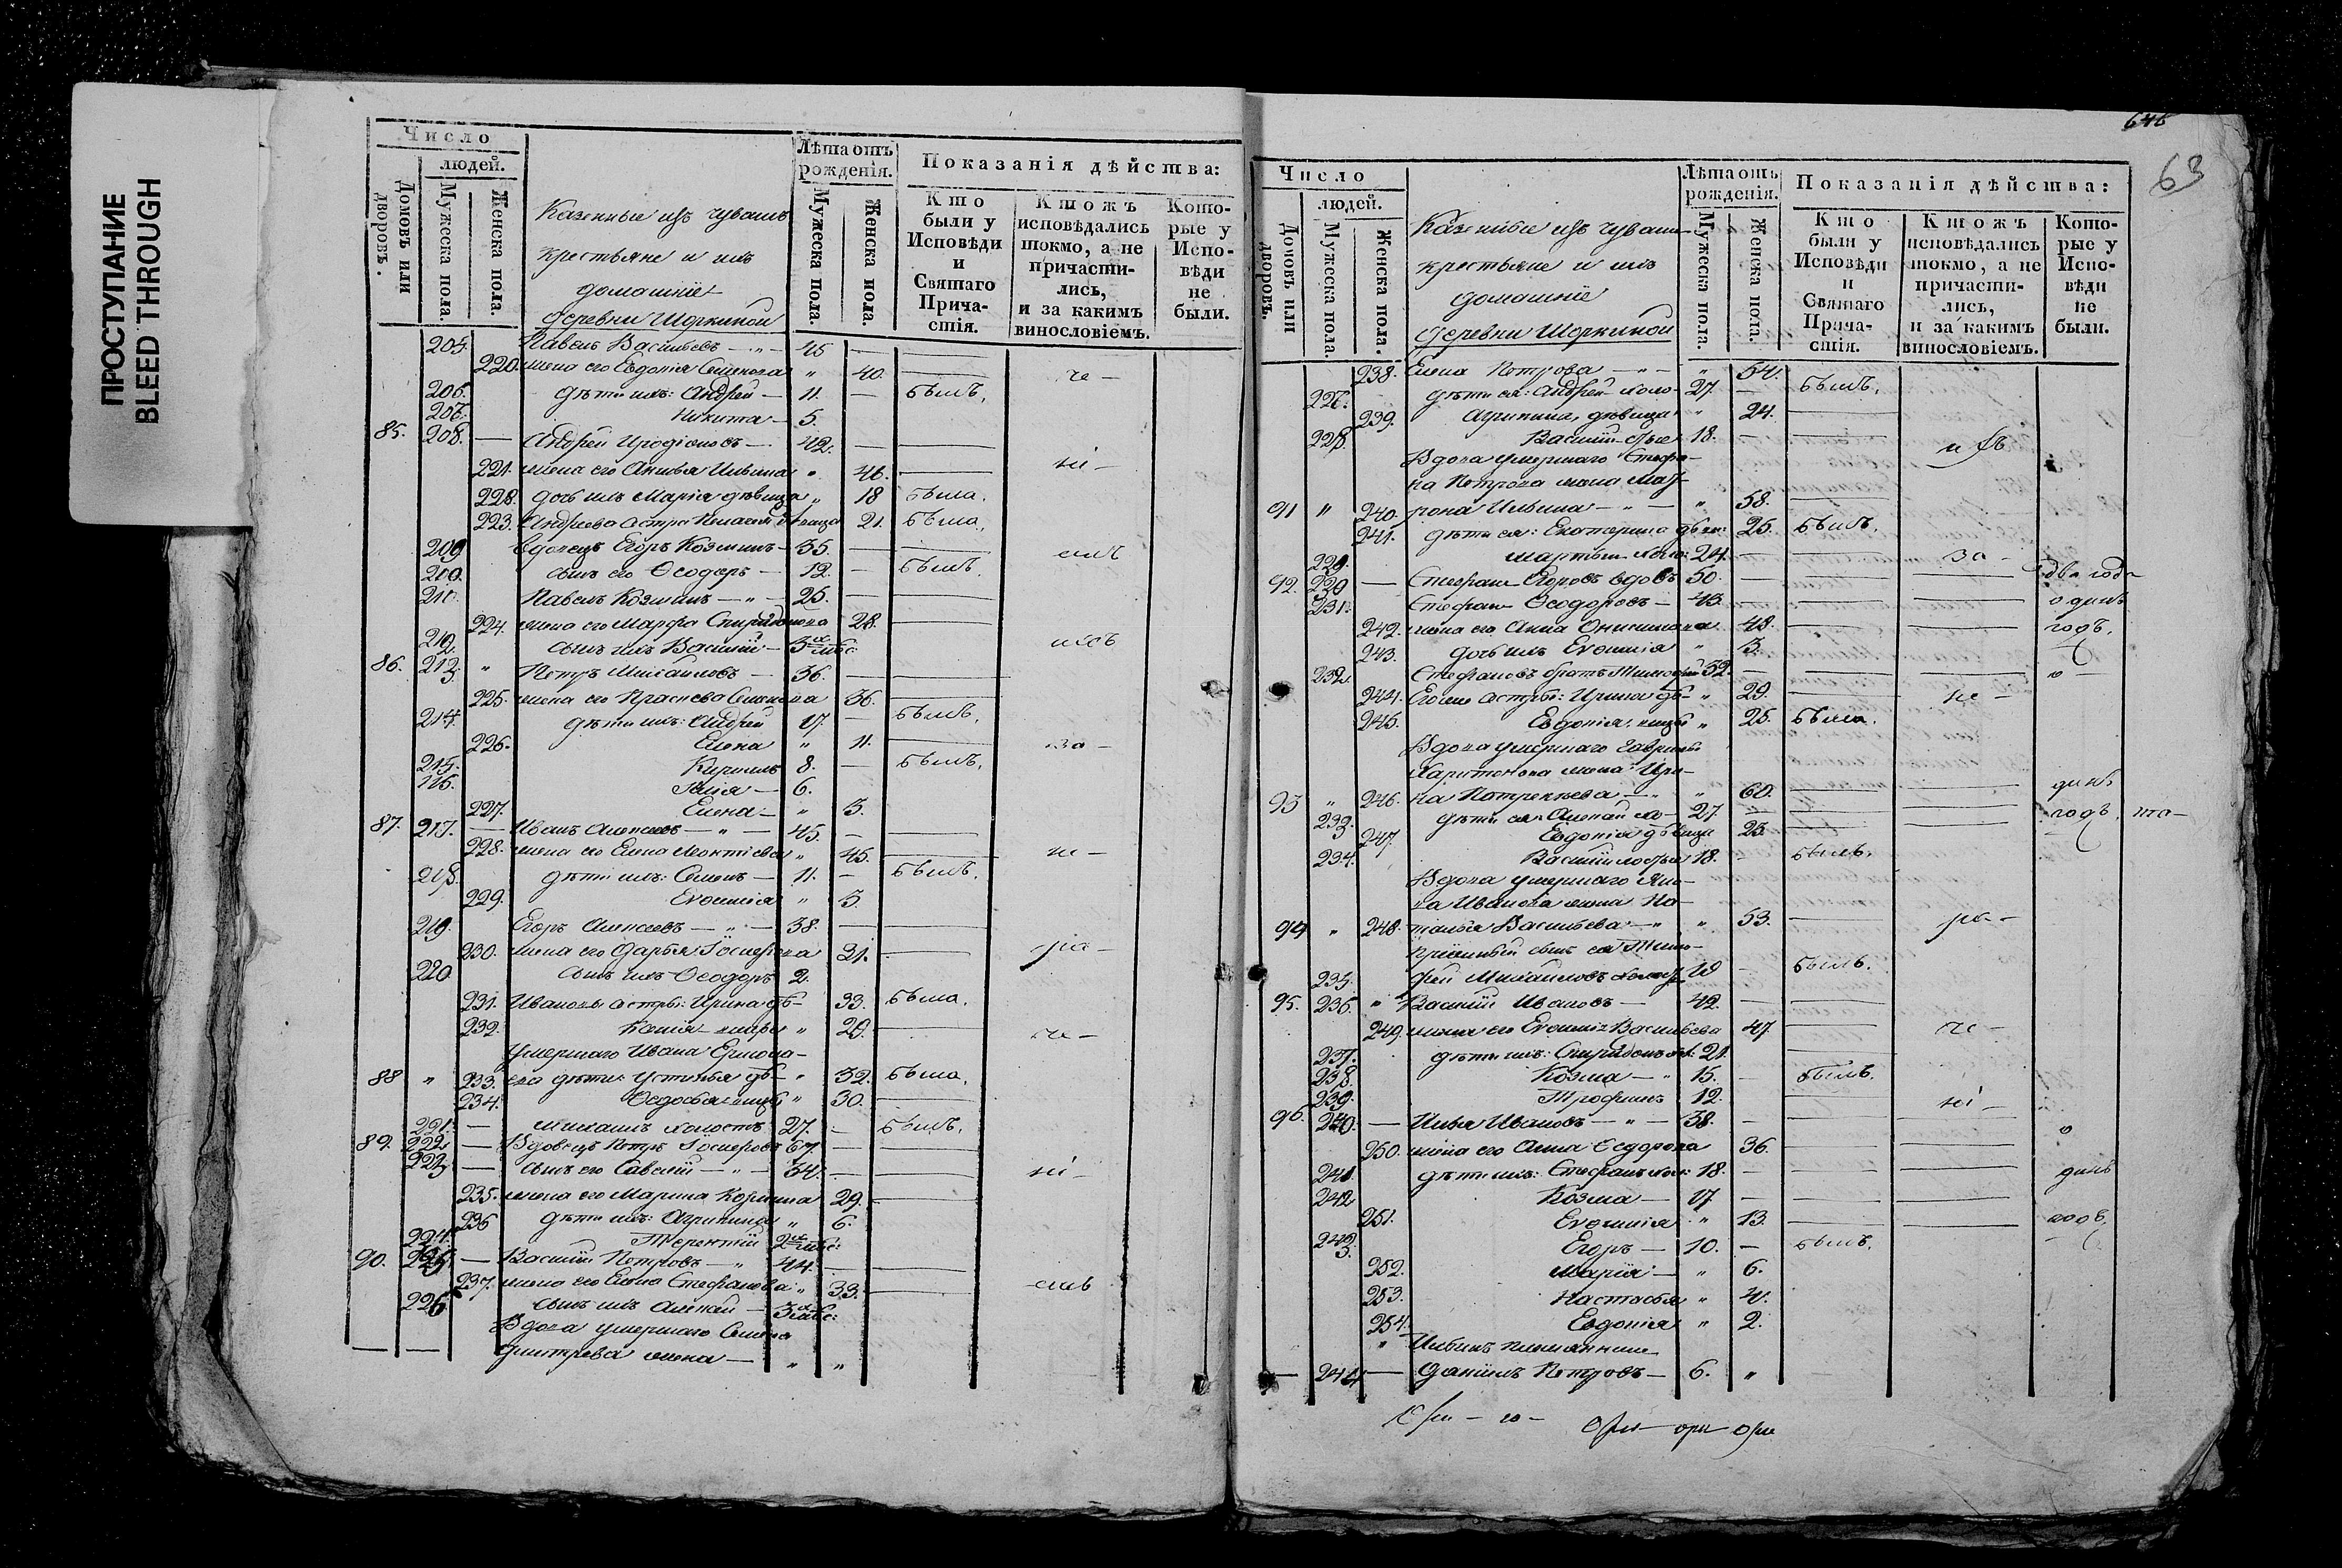 ПРОСТУПАНИЕ
BLEED THROUGH
Число
людей.
Домовъ или дворовъ.
Мужеска пола.
Женска пола.
Казенные изъ чувашъ
крестьяне и ихъ
домашніе
деревни Шоркиной
Лѣта отъ рожденія.
Мужеска пола.
Женска пола.
Показанія дѣйства:
Кто были у Исповѣди и Святаго Прича-стія.
Ктожъ исповѣдались токмо, а не причасти-лись, и за какимъ винословіемъ.
Кото-рые у Испо-вѣди не были.
205. Павелъ Васильевъ — 45 —
220. жена его Евдокія Семенова " 40. — не —
206. дѣти ихъ: Андрей — 11. — былъ.
207. Никита — 5.
85. 208. — Андрей Иродіоновъ — 42. —
221. жена его Анисья Ильина " 46. — ні —
228. дочь ихъ Марія дѣвица " 18 была.
223. Андреева сестра Пелагея дѣвица 21. была.
209 вдовецъ Егоръ Козминъ — 35. — емъ
210. сынъ его Ѳеодоръ — 12. — былъ.
211. Павелъ Козминъ — " — 25. —
224. жена его Марфа Спиридонова 28. —
212 сынъ ихъ Василій — 3 мѣс:
86. 213. " Петръ Михайловъ — 36. —
225. жена его Прасковья Семенова 36. —
214. дѣти ихъ: Андрей 17. — былъ.
226. Елена " 11. — за —
215. Кирилъ 8. — былъ.
216. Илія — 6.
227. Елена — " 3.
87. 217. — Иванъ Алексеевъ — " — 45. —
228. жена его Елена Леонтіева " 45. — не —
218. дѣти ихъ: Семенъ — 11. — былъ.
229. Евѳимія " 3
219. Егоръ Алексеевъ — " — 38. —
230. жена его Дарья Іосифова 31. — ра —
220 сынъ ихъ Ѳеодоръ 2.
231. Ивановы сестры: Ирина дѣ- 33. была.
232. Ксенія — вицы " 29. — че —
умершаго Ивана Ермола-
88 " 233. ева дѣти: Устинья дѣ- " 32. была.
234. Ѳедосья — вицы " 30. —
221. — Михаилъ холостъ 27. — былъ.
89. 222. — Вдовецъ Петръ Іосифовъ 67. —
223 — сынъ его Савелій — " — 34. — ні —
235. жена его Марина Корнила 29. —
236 дѣти ихъ: Агрипина " 6.
224. Терентій 2 мѣс:
90. 225. — Василій Петровъ — " 44. —
237. жена его Елена Стефанова " 33. — емъ
226 сынъ ихъ Алексѣй — 3 мѣс:
Вдова умершаго Семена
— — Дмитрева жена — " "
646
63
Число
людей.
Домовъ или дворовъ.
Мужеска пола.
Женска пола.
Казенные изъ чувашъ
крестьяне и ихъ
домашніе
деревни Шоркиной
Лѣта отъ рожденія.
Мужеска пола.
Женска пола.
Показанія дѣйства:
Кто были у Исповѣди и Святаго Прича-стія.
Ктожъ исповѣдались токмо, а не причасти-лись, и за какимъ винословіемъ.
Кото-рые у Испо-вѣди не были.
238. Елена Петрова — " — " 54.
227. дѣти ея: Андрей холо- 27. — былъ.
239. Агрипина, дѣвица " 24. —
228. Василій 18. —
Вдова умершаго Стефа-
на Петрова жена Мат-
91 " 240. рона Ильина — " — " 58. —
241. дѣти ея: Екатерина дѣви: 25. былъ.
229. Мартынъ холо: 24. — за —
92. 230 — Стефанъ Егоровъ вдовъ 50. — — — два года
231. Стефанъ Ѳеодоровъ — 43. — — — одинъ
242. жена его Анна Онисимова 48. — — годъ.
243. дочь ихъ Евѳимія " 3.
232. Стефановъ братъ Тимоѳей 32. — — — о —
244. Его же сестры: Ирина дѣ- " 29. — не —
245. Евдокія вицы " 25. была.
Вдова умершаго Гаврилы
Харитонова жена Ири-
93 " 246. на Потрекеева — " " 60. — — динъ
233. дѣти ея Алексѣй хо- 27. — — — годъ. то —
247. Евдокія дѣвица 23. — —
234. 18. — былъ.
Вдова умершаго Яко-
ва Иванова жена На-
94 " 248. талья Васильева — " " 53. — ра —
Пріемный сынъ ея Тимо-
235. фей Михайловъ 19 — былъ.
95. 236. " Василій Ивановъ — 42. — —
249. жена его Евѳимія Васильева 47 — че —
237. дѣти ихъ: Спиридонъ 21. —
238. Козма — " 15. — былъ.
239. Трофимъ 12. — ні —
96. 240. — Илья Ивановъ — " — 38. — — — о
250. жена его Анна Ѳедорова 36. — —
241. дѣти ихъ: Стефанъ хол: 18. — — — динъ
242 Козма — 17 — — —
251. Евѳимія " 13. — — годъ.
243. Егоръ — 10. — былъ.
252. Марія — " 6.
253. Настасья " 4.
254. Евдокія " 2.
" Ильинъ племянникъ
— 244 — Даніилъ Петровъ — 6. "